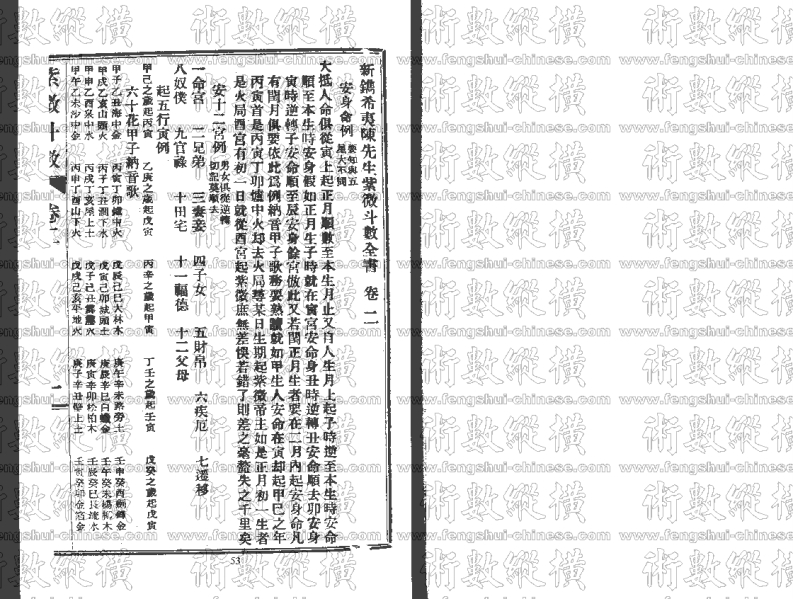 新鐫希夷陳先生紫微斗數全書　卷二
安身命例　要知與五星大不同
大抵人命俱從寅上起正月順數至本生月止又自人生月上起子時逆至本生時安命
順至本生時安身假如正月生子時就在寅宮安命身丑時逆轉丑安命順去卯安身
寅時逆轉子安命順至辰安身餘宮倣此又若閏正月生者要在二月內起安身命凡
有閏月俱要依此為例納音甲子歌務要熟讀就如甲生人安命在寅却起甲巳之年
丙寅首是丙寅丁卯爐中火却去火局尋某日生期起紫微帝主如是正月初一生者
是火局酉宮有初一日就從酉宮起紫微庶無差悞若錯了則差之毫釐失之千里矣
安十二宮例　男女俱從逆轉切記莫順去
一命宮　二兄弟　三妻妾　四子女　五財帛　六疾厄　七遷移
八奴僕　九官祿　十田宅　十一福德　十二父母
起五行寅例
甲己之歲起丙寅　乙庚之歲起戊寅　丙辛之歲起庚寅　丁壬之歲起壬寅　戊癸之歲起甲寅
六十花甲子納音歌
甲子乙丑海中金　丙寅丁卯爐中火　戊辰己巳大林木　庚午辛未路旁土　壬申癸酉劍鋒金
甲戌乙亥山頭火　丙子丁丑澗下水　戊寅己卯城頭土　庚辰辛巳白蠟金　壬午癸未楊柳木
甲申乙酉泉中水　丙戌丁亥屋上土　戊子己丑霹靂火　庚寅辛卯松柏木　壬辰癸巳長流水
甲午乙未沙中金　丙申丁酉山下火　戊戌己亥平地木　庚子辛丑壁上土　壬寅癸卯金箔金
紫微斗數　卷二　二
53
術數縱橫
www.fengshui-chinese.com